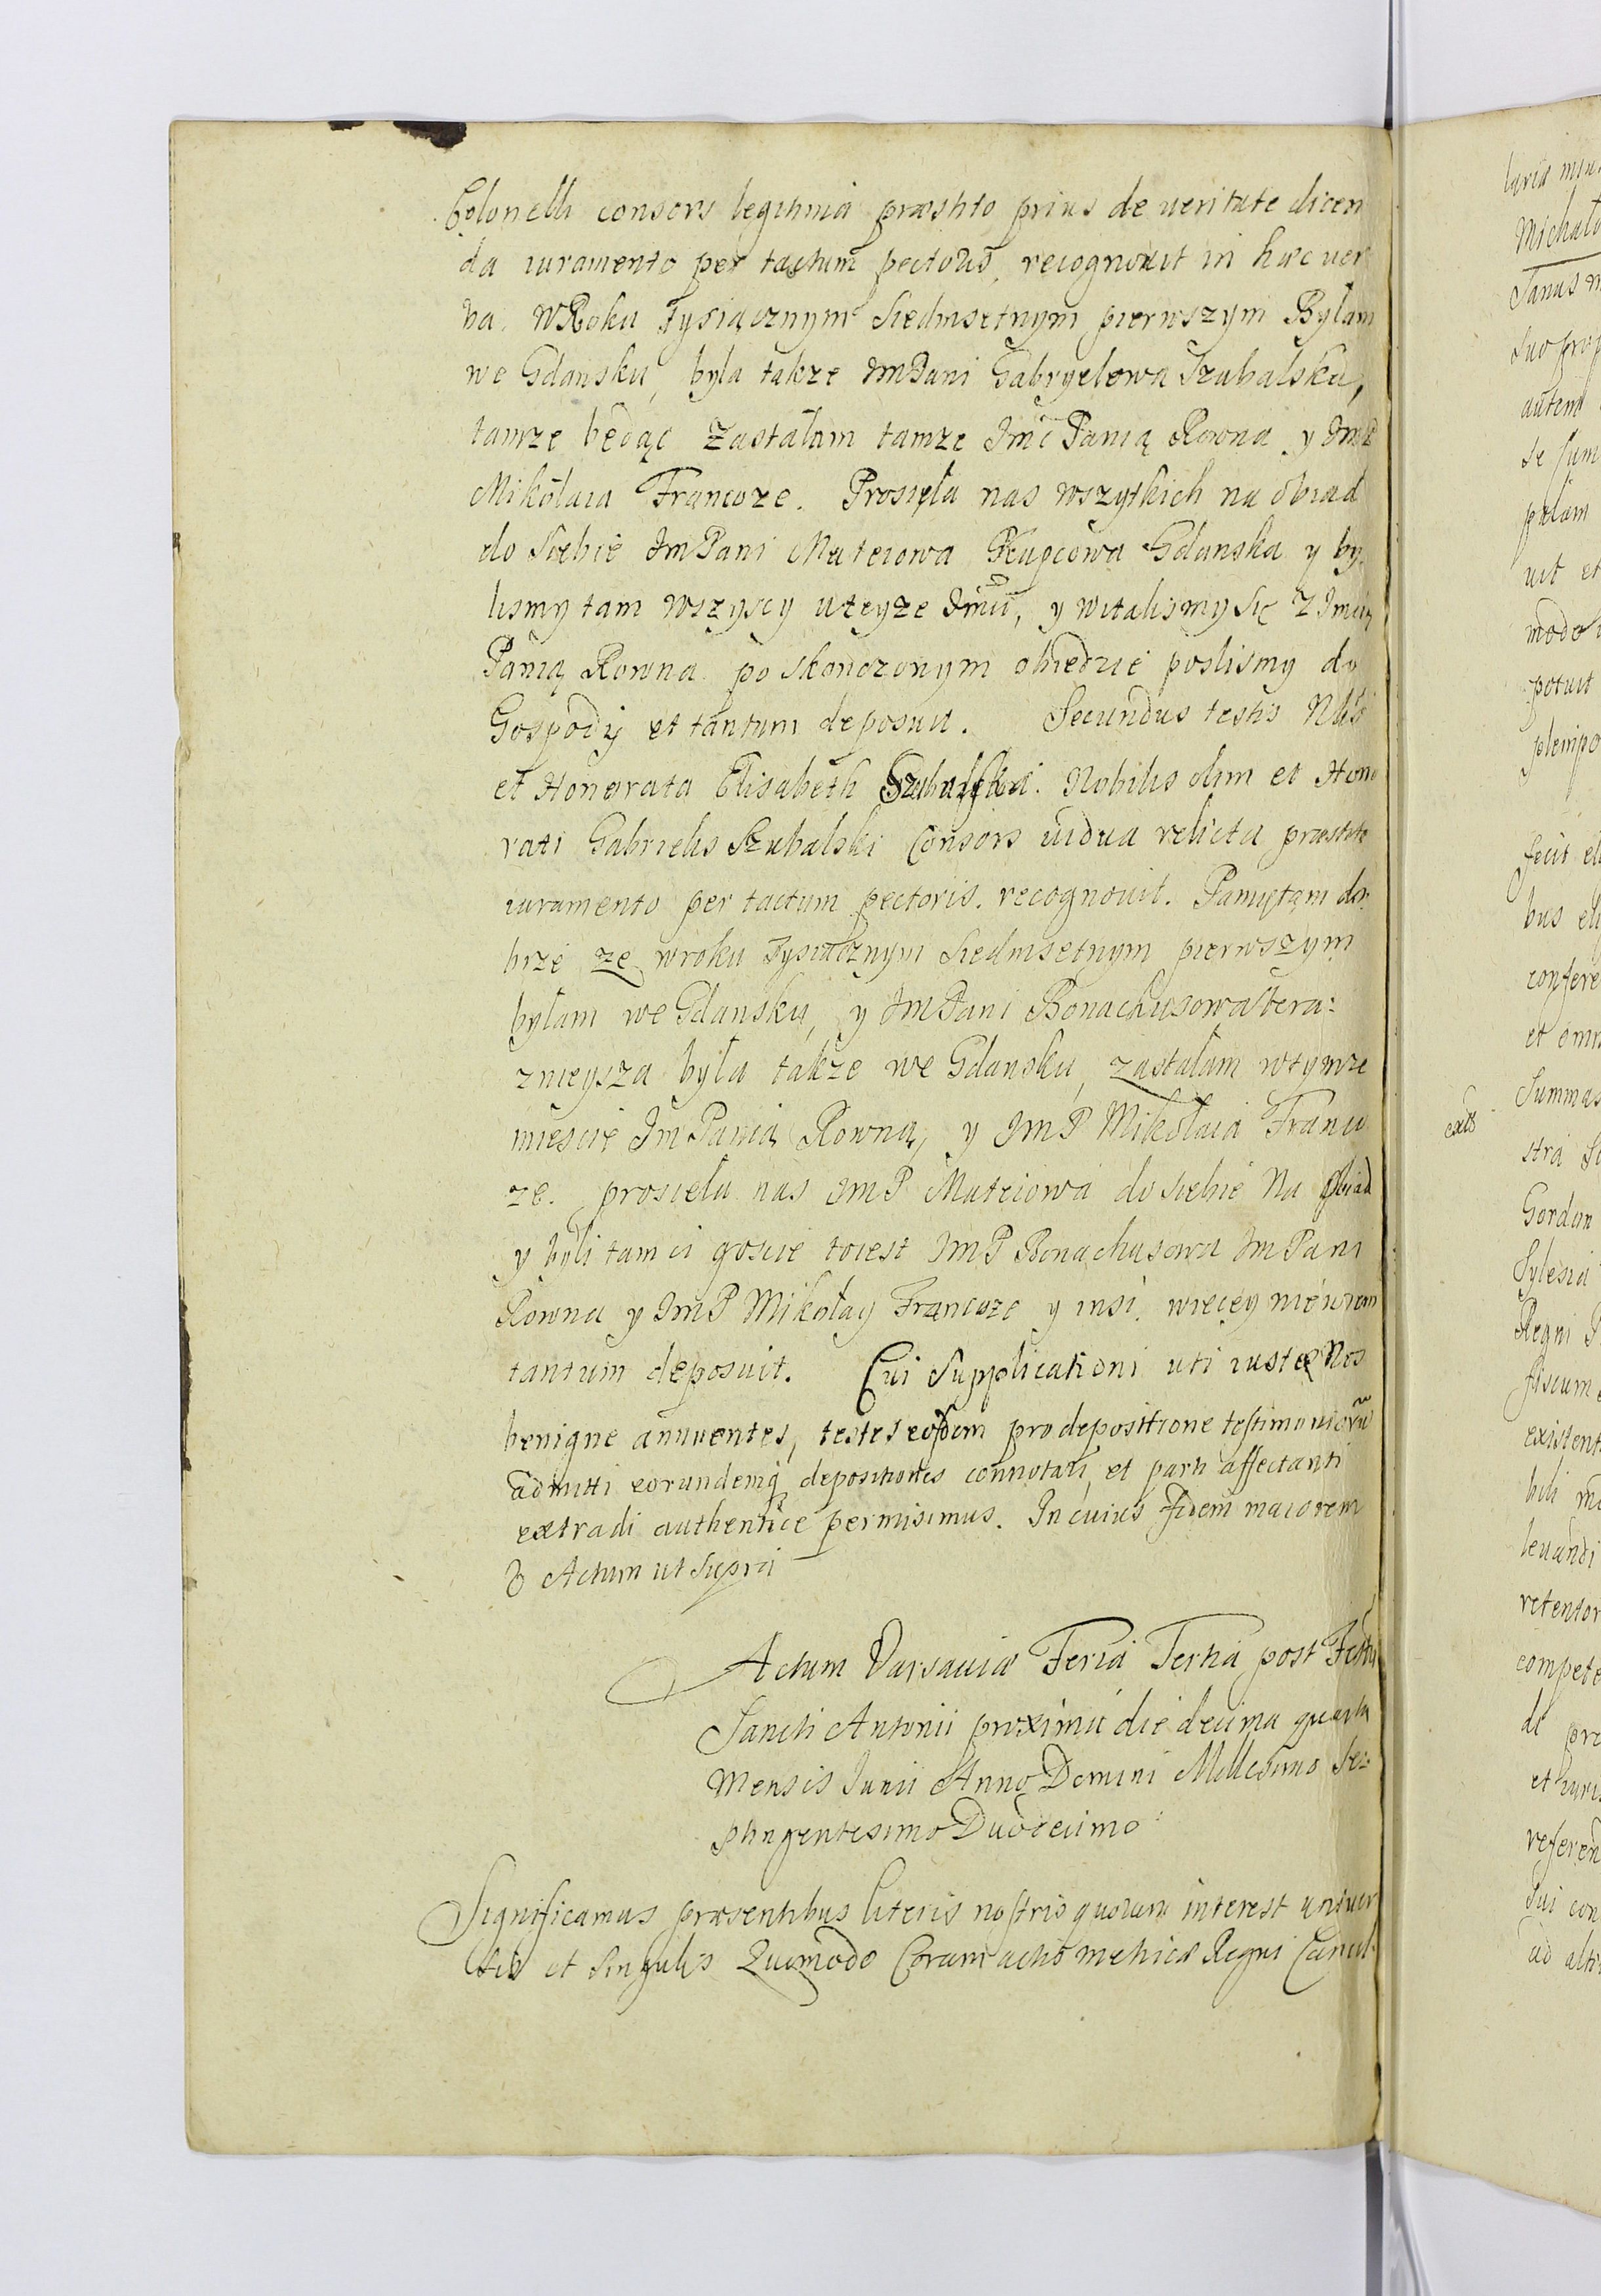 Colonelli consors legitima præstito prius de ueritate dicen
da iuramento per tactum pectoris, recognouit in hæc uer
ba. WRoku Tysiącznym Siedmsetnym pierwszym Bylam
we Gdansku, byla takze ImPani Gabryelowa Szubalska,
tamze będąc zastałam tamze Imc Panią Rowna y ImP
Mikołaia Francoze. Prosieła nas wszytkich na obiad
do Siebie ImPani Mateiowa Kupcowa Gdanska y by
lismy tam wszyscy uteyze Imci, y witalismy się z Imcią
Panią Rowna po skonczonym obiedzie poslismy do
Gospody et tantum deposuit. Secundus testis Nlis
et Honorata Elisabeth Szubalska. Nobilis olim et Hono
rati Gabrielis Szubalski Consors uidua relicta præstito
iuramento per tactum pectoris. recognouit. Pamiętam do
brze ze wroku Tysiącznym Siedmsetnym pierwszym
byłam we Gdansku, y ImPani Bonachusowa tera:
znieysza była takze we Gdansku, zastałam wtymze
miescie ImPanią Rowną, y ImP Mikołaia Francu
ze. prosieła nas ImP Mateiowa do siebie Na obiad
y byli tam ci goscie toiest ImP Bonachusowa ImPani
Rowna y ImP Mikołay Francuze y insi. więcey niewiem
tantum deposuit. Cui Supplicationi uti iustæ Nos
benigne annuentes, testes eosdem pro depositione testimoniorũ
admitti eorundemq depositiones connotari, et parti affectanti
extradi authentice permisimus. In cuius fidem maiorem
Actum ut Supra
Actum Varsauiæ Feria Tertia post Festũ
Sancti Antonii proximũ die decima quarta
Mensis Junii Anno Domini Millesimo Se:
ptingentesimo Duodecimo
Significamus præsentibus literis nostris quorum interest uniuer
sis et singulis Quomodo Coram actis metricæ Regni Cancel
exts